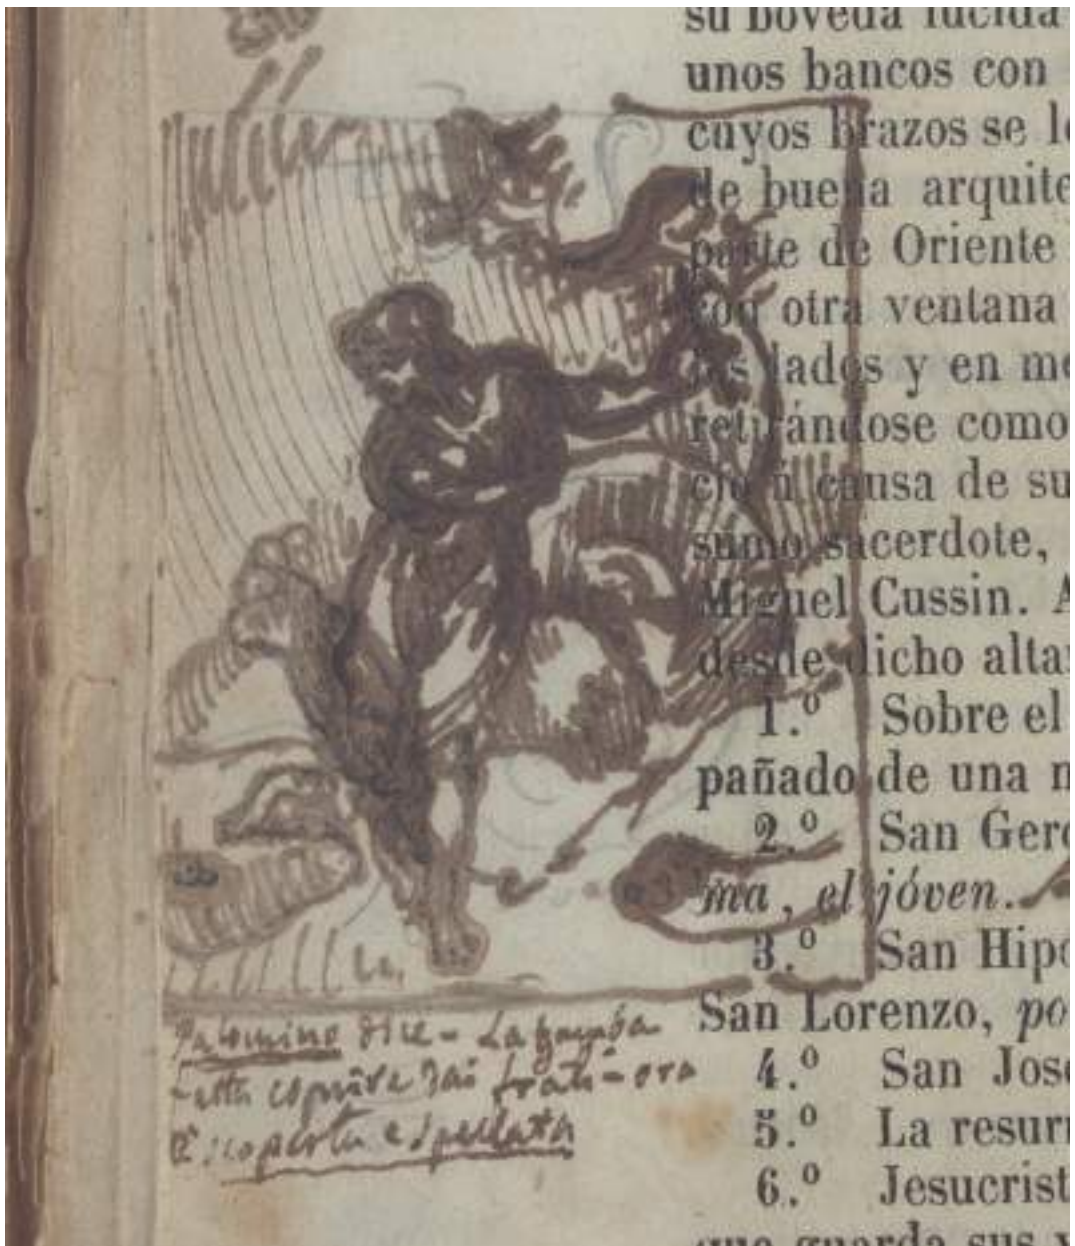 su boveda lucida
unos bancos con
cuyos brazos se
de buena arquite
parte de Oriente
con otra ventana
los lados y en me
retirándose como
cio á causa de su
sumo sacerdote,
Miguel Cussin. A
desde dicho alta
1.º Sobre el
pañado de una
2.º San Gero
ma, el jóven.
3.º San Hipo
San Lorenzo, po
4.º San Jose
5.º La resur
6.º Jesucrist
que guarda sus
Palomino dice - La gamba
fatta coprire dai frati - ora
è scoperta e spellata